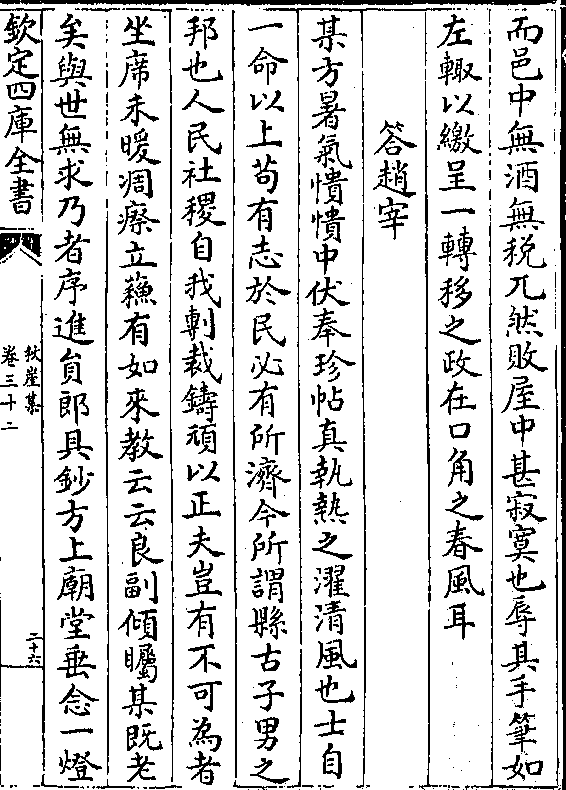 而邑中無酒無稅兀然敗屋中甚寂寞也辱其手筆如
左輙以繳呈一轉移之政在口角之春風耳
答趙宰
某方暑氣憒憒中伏奉珍帖真執熱之濯清風也士自
一命以上苟有志於民必有所濟今所謂縣古子男之
邦也人民社稷自我剸裁鑄頑以正夫豈有不可為者
坐席未暖凋瘵立蘓有如來教云云良副傾矚某既老
矣與世無求乃者序進貟郎具鈔方上廟堂垂念一燈
欽定四庫全書
牧崖集
卷三十二
二十六